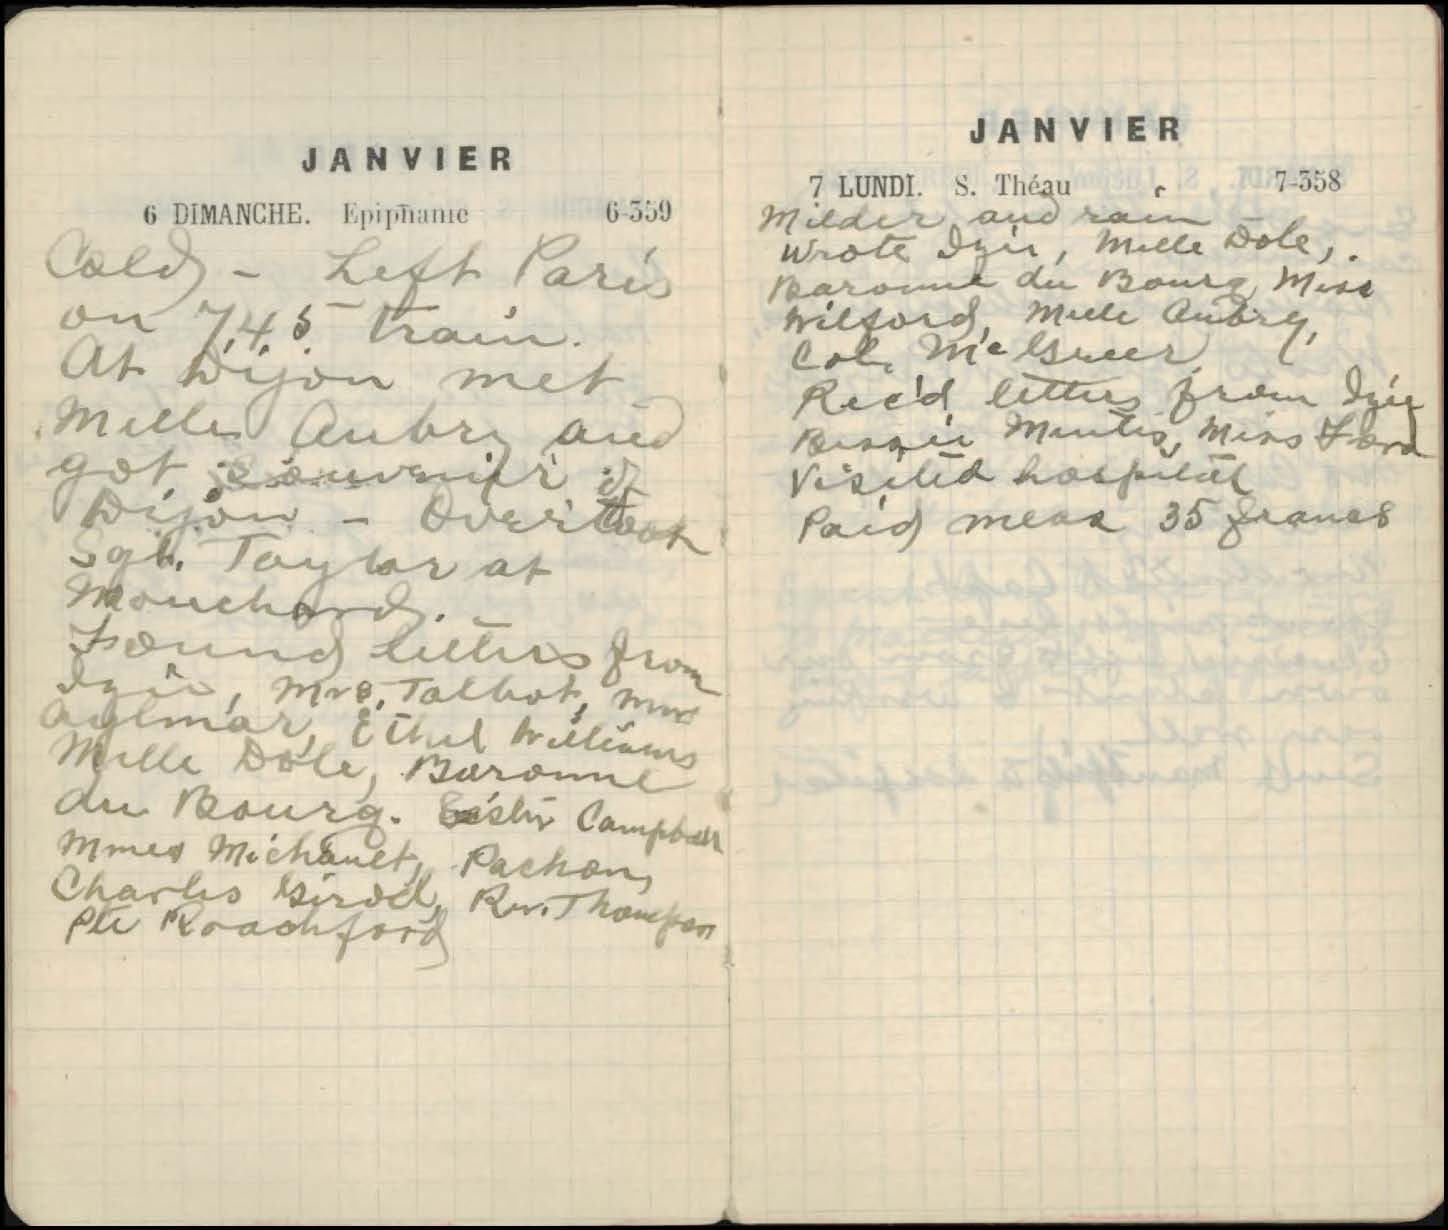 JANVIER
6 DIMANCHE. Epiphanie 6-359
Cold - Left Paris
on 7.45 train.
At Dijon met
Melle Aubry and
got souvenir of
Dijon - Overtook
Sgt. Taylor at
Mouchard.
Found letters from
Izie, Mrs. Talbot, Mrs
Aylmar, Ethel Williams
Melle Dole, Baronne
du Bourg. Campbell
Mmes Michault, Pachon,
Charles Girod, Rev. Thompson
Pte Roachford
JANVIER
7 LUNDI. S. Théau 7-358
Milder and rain
Wrote Izie, Melle Dole,
Baronne du Bourg, Miss
Wilford, Melle Aubry,
Col. McGreer
Rec'd letters from Izie
Miss Ford
Visited hospital
Paid mess 35 francs